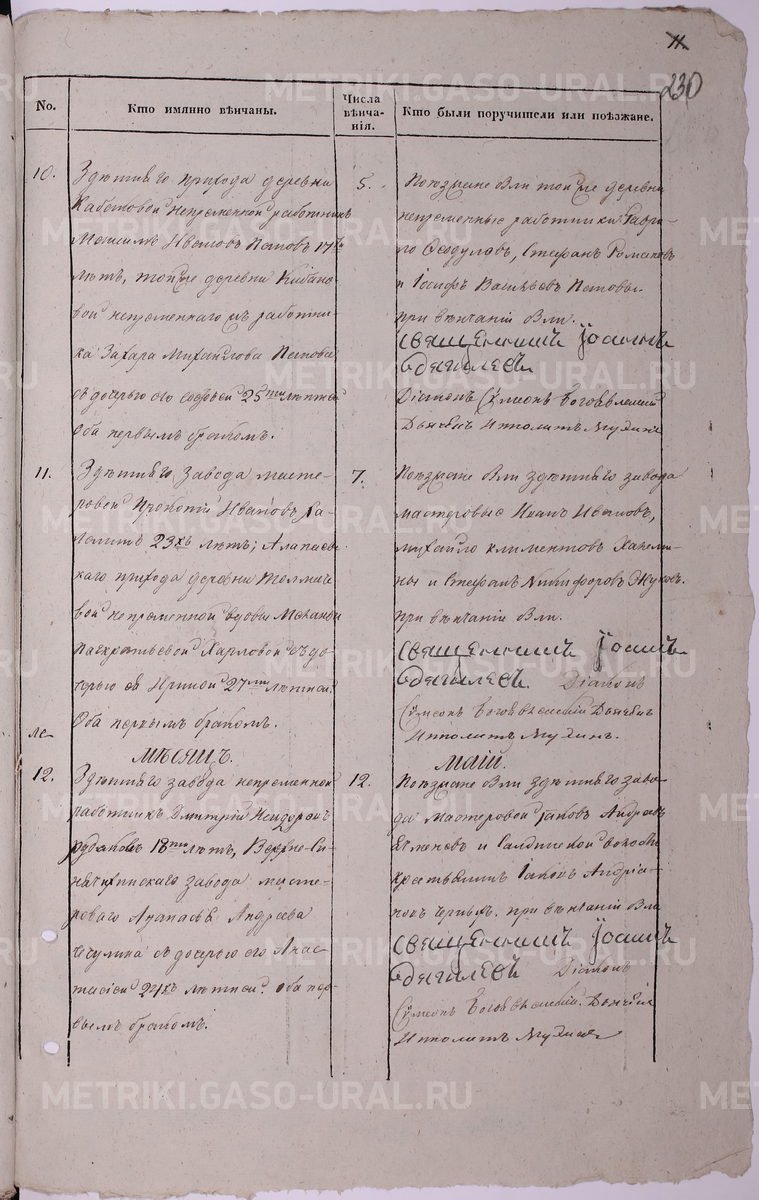 11.
230
No.
Кто имянно вѣнчаны.
Числа вѣнча-нія.
Кто были поручители или поѣзжане.
10.
Здѣшняго прихода деревни
Кабаковой непременной работникъ
Максимъ Ивановъ Поповъ 17ти
лѣтъ, тойже деревни
вой непременнаго работни-
ка Захара Михайлова Попова
съ дочерью его 25ти лѣтней
Оба первымъ бракомъ.
5.
Поѣзжане были тойже деревни
непременные работники Гаври-
ло Ѳедуловъ, Стефанъ Романовъ
и Іосифъ Васильевъ Поповы.
при вѣнчаніи были.
священникъ Іоаннъ
Удинцевъ
Діаконъ Сѵмеонъ Богоявленскій
Дьячекъ Ипполитъ Мухинъ
11.
Здѣшняго завода масте-
ровой Прокопій Ивановъ Ха-
23хъ лѣтъ; Алапаев-
каго прихода деревни Толмаче-
вой непременной вдовы
Панкратьевой Харловой съ до-
черью ея Ириной 27ми лѣтней.
Оба первымъ бракомъ.
7.
Поѣзжане были здѣшняго завода
мастеровые Иванъ Ивановъ,
михайло климентовъ
ны и Стефанъ Никифоровъ Жуковъ.
при вѣнчаніи были.
священникъ Іоаннъ
Удинцевъ. Діаконъ
Сѵмеонъ Богоявленскій Дьячекъ
Ипполитъ Мухинъ.
Мѣсяцъ. Маій.
12.
Здѣшняго завода непременной
работникъ Дмитрій
Рудаковъ 18ти лѣтъ, Верхне-Си-
нячихинскаго завода масте-
роваго Аѳанасья Андреева
съ дочерью его Анас-
тасіей 21хъ лѣтней. Оба пер-
вымъ бракомъ.
12.
Поѣзжане были здѣшняго заво-
да мастеровой Іаковъ Андреевъ
и Салдинской волости
крестьянинъ Іаковъ Андріа-
новъ при вѣнчаніи были
священникъ Іоаннъ
Удинцевъ Діаконъ
Сѵмеонъ Богоявленскій. Дьячекъ
Ипполитъ Мухинъ
METRIKI.GASO-URAL.RU